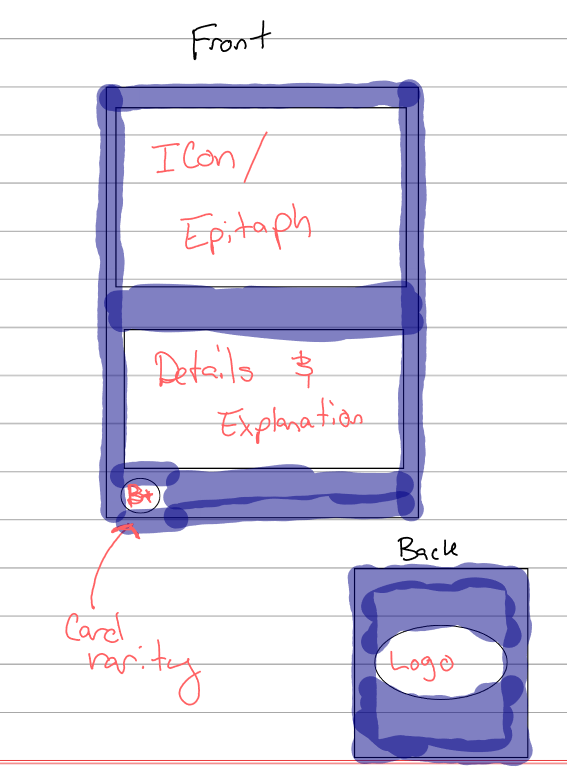 Front
Icon/
Epitaph
Details &
Explanation
B+
Card
rarity
Back
Logo